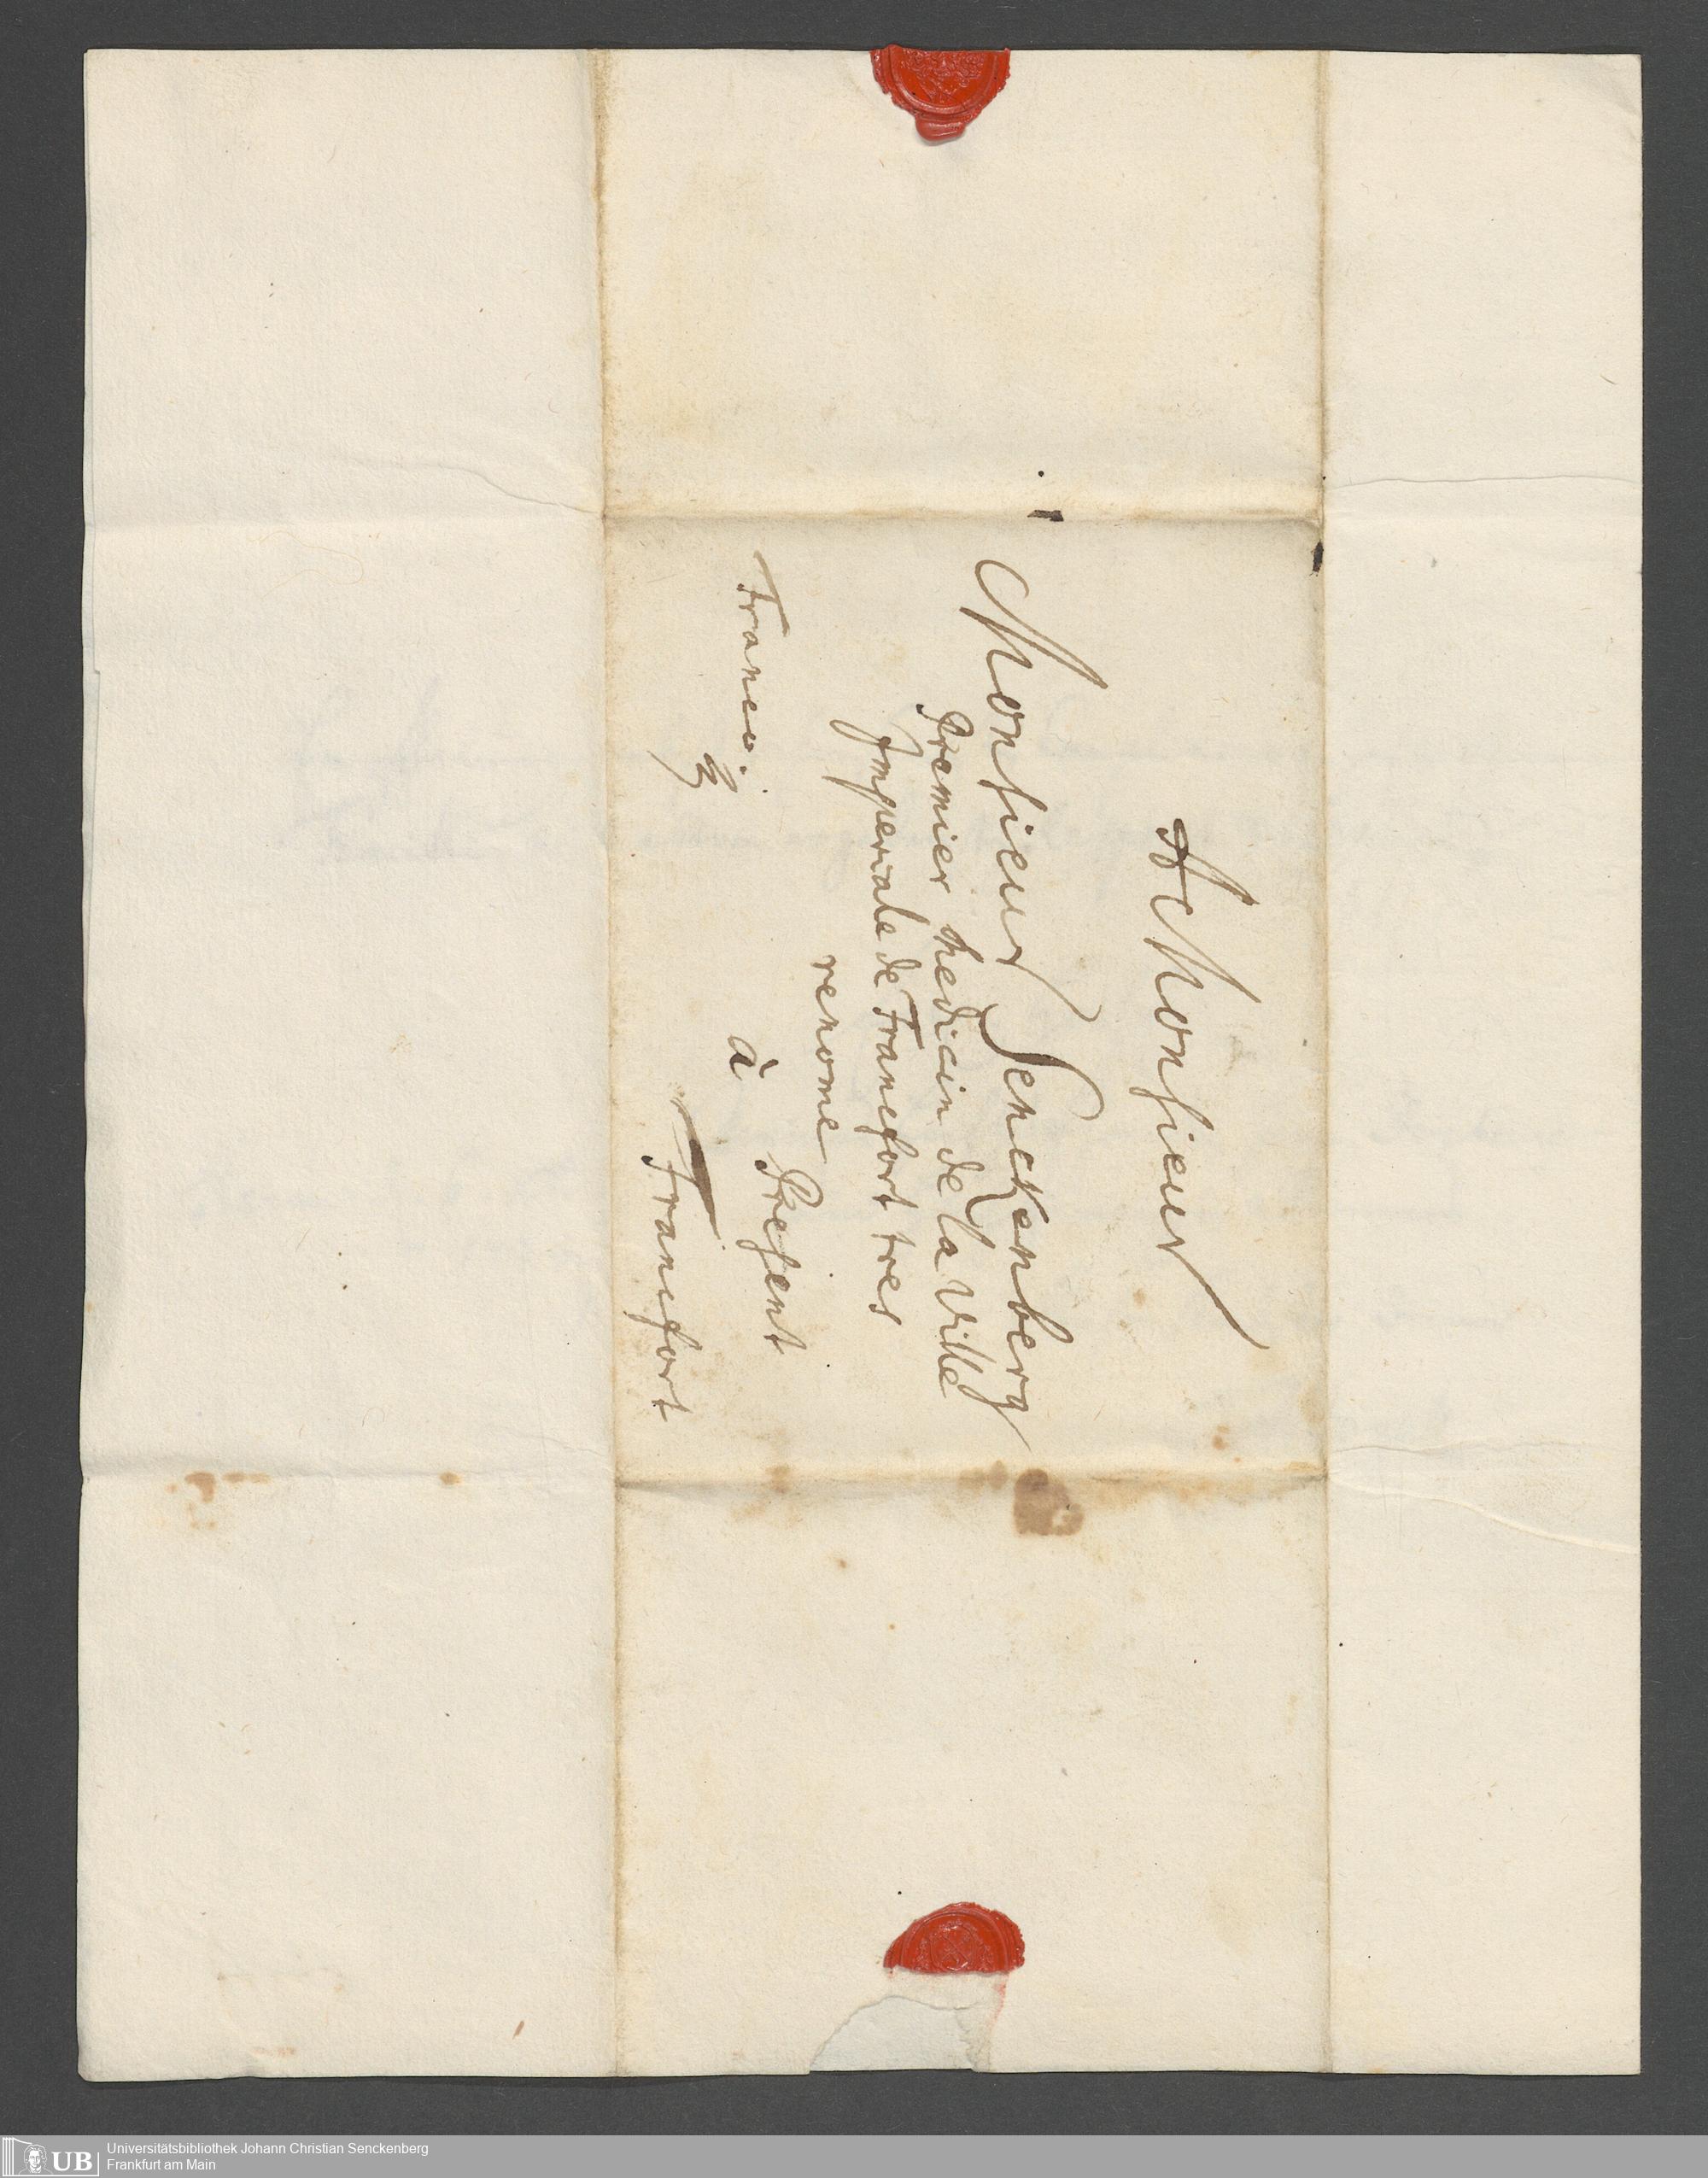 A Monsieur
Monsieur Senckenberg
Premier Medicin de la Ville
Imperiale de Francfort tres
renome
Present
à
Franco.
Francfort
UB
Universitätsbibliothek Johann Christian Senckenberg
Frankfurt am Main